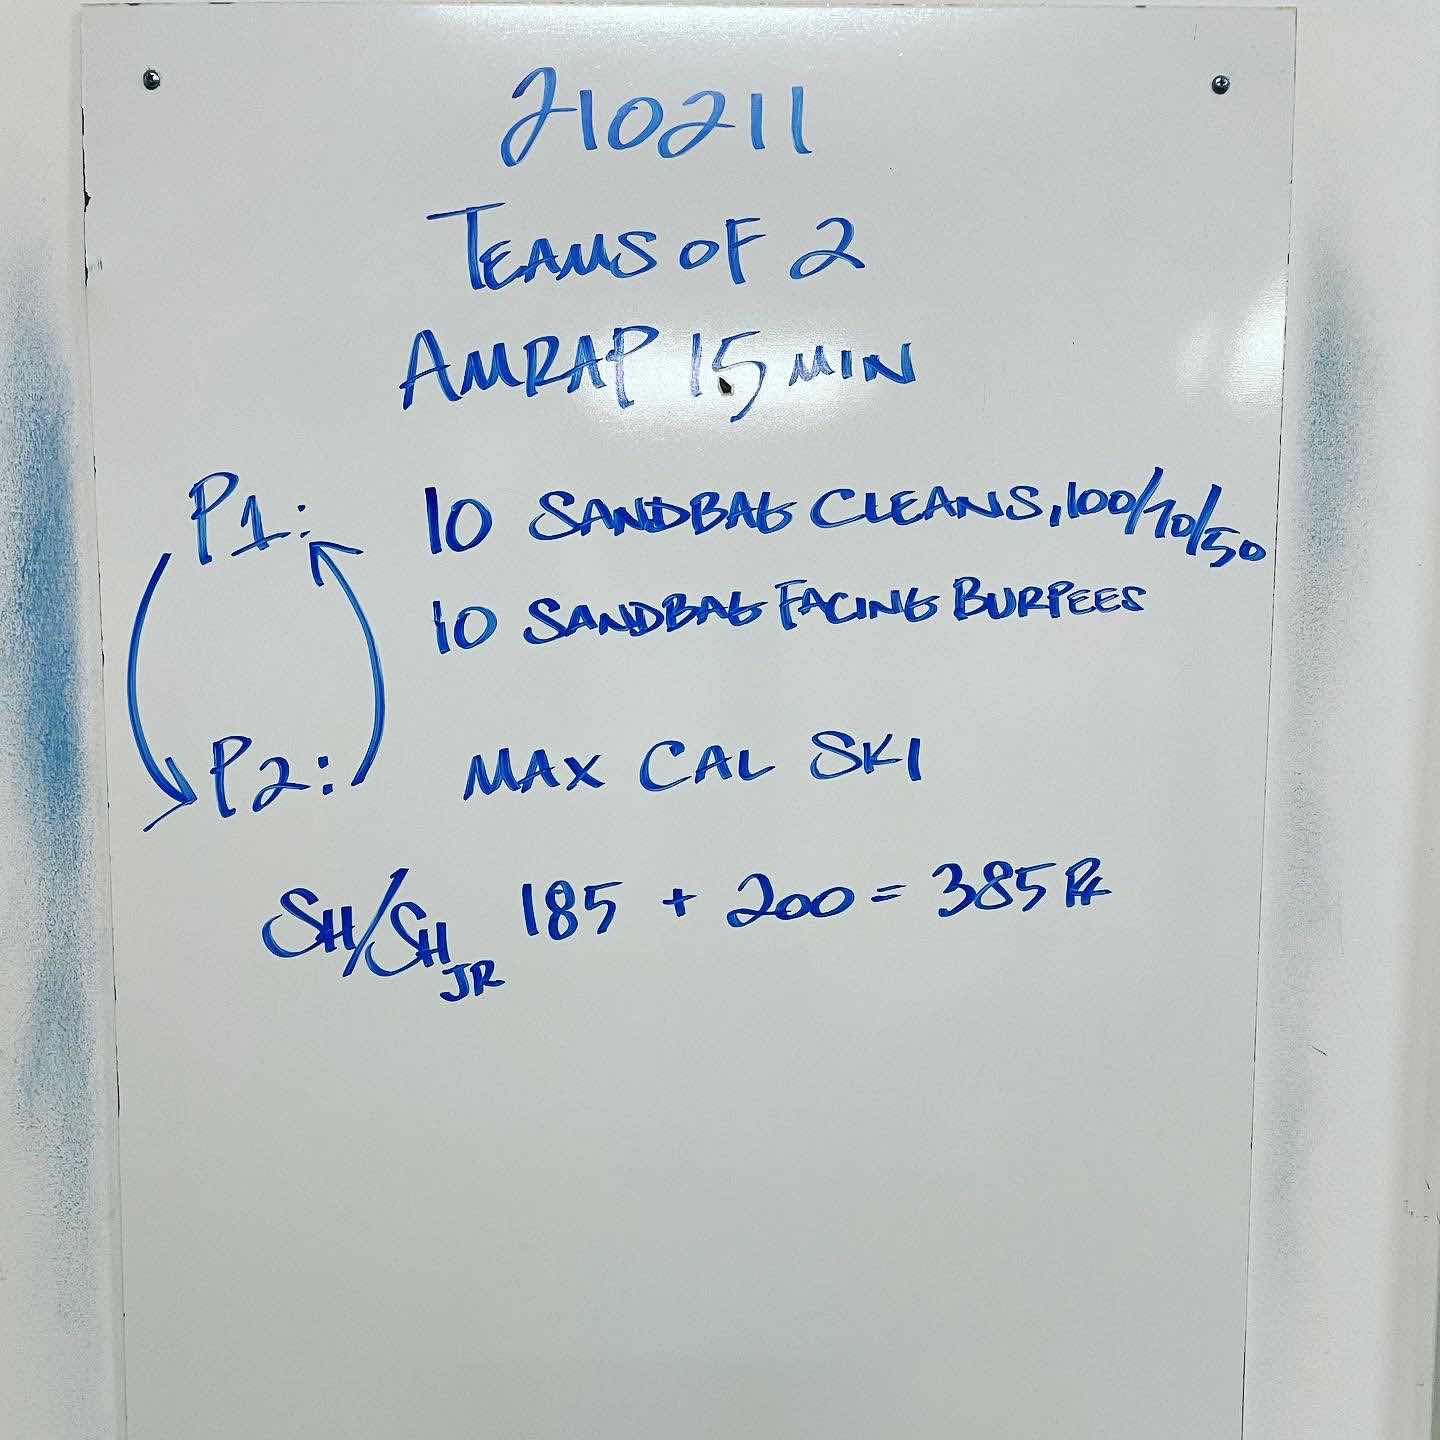 210211
TEAMS OF 2
AMRAP 15 MIN
P1: 10 SANDBAG CLEANS, 100/70/50
10 SANDBAG FACING BURPEES
P2: MAX CAL SKI
SH/SH JR 185 + 200 = 385